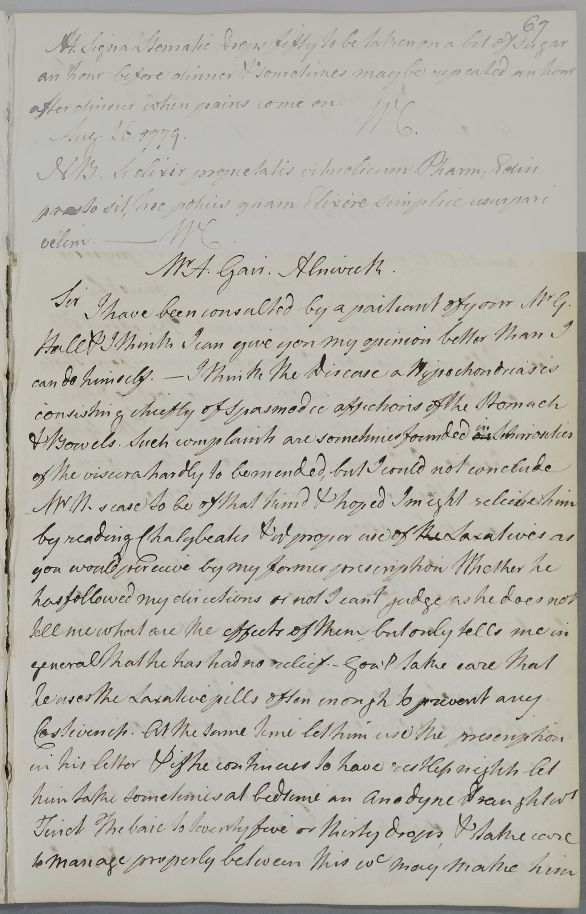 69
M. Signa Stomatic Drops fifty to be taken on a bit of Sugar
an hour before dinner & sometimes may be repeated an hour
after dinner when pains come on
Aug. 26. 1779. WC.
NB. Si elixir proprietatis vitriolicum Pharm. Edin
presto sit, hoc potius quam Elixire simplice usurpari
velim. — WC.
Mr A. Gair. Alnwick.
Sir
I have been consulted by a paitiant of your Mr G.
Hall & I think I can give you my opinion better than I
can do himself. — I think the Disease a Hipochondriasis
consisting chiefly of spasmodic affections of the Stomach
& Bowels. Such complaints are sometimes founded in Schirrosities
of the viscera hardly to be mended, but I could not conclude
Mr H.s case to be of that kind & hoped I might relieve him
by Chalybeates & a proper use of Laxatives as
you would perceive by my former prescription Whether he
has followed my directions or not I cant judge as he does not
tell me what are the effects of them, but only tells me in
general that he has had no relief. — take care that
he uses the Laxative pills often enough to prevent any
Costiveness. At the same time let him use the prescription
in his letter & if he continues to have restless nights let
him take sometimes at bedtime an anodyne Draught wt
Tinct Thebaic to twenty five or thirty drops, & take care
to manage properly between this wc may make him